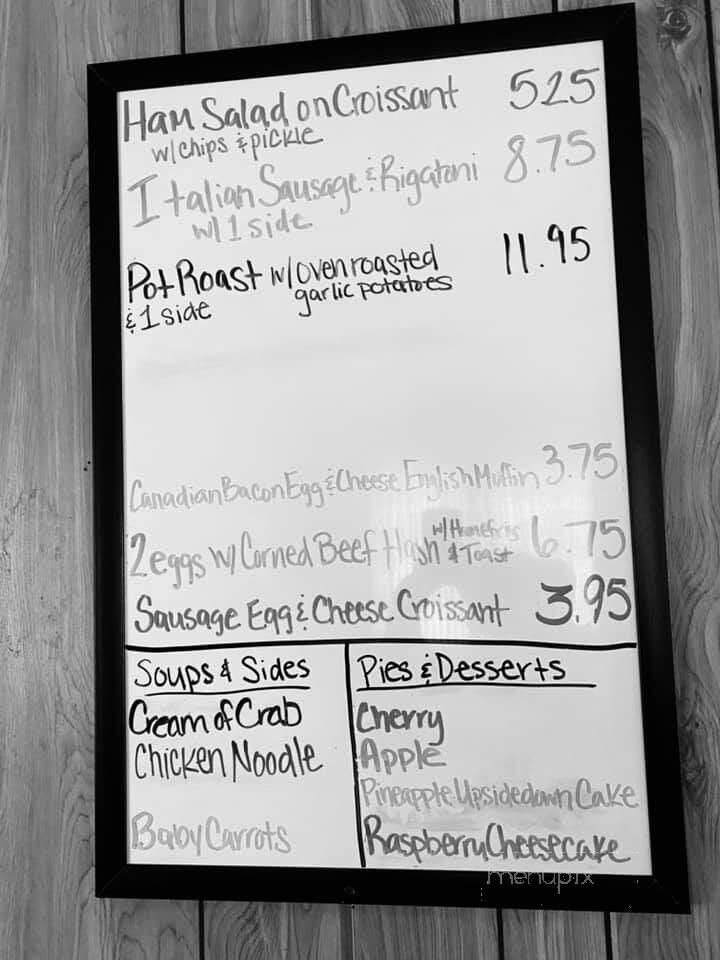 Ham Salad on Croissant 525
w/chips & pickle
Italian Sausage & Rigatoni 8.75
w/ 1 side
Pot Roast w/oven roasted 11.95
garlic potatoes
& 1 side
Canadian Bacon Egg & Cheese English Muffin 3.75
w/Homefries
2 eggs w/ Corned Beef Hash & Toast 6.75
Sausage Egg & Cheese Croissant 3.95
Soups & Sides
Cream of Crab
Chicken Noodle
Baby Carrots
Pies & Desserts
Cherry
Apple
Pineapple Upsidedown Cake
Raspberry Cheesecake
menupix